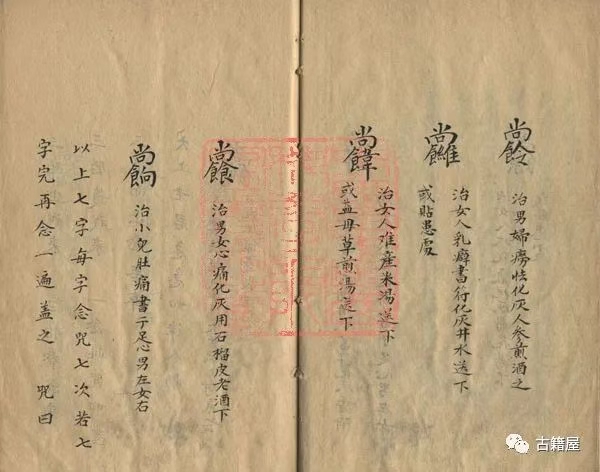 治男婦癆怯化灰人參煎酒之
治女人乳癖書行化灰井水送下
或貼患處
治女人难產米湯送下
或益母草煎湯送下
治男女心痛化灰用石榴皮老酒下
治小兒肚痛書于足心男左女右
以上七字每字念咒七次若七
字完再念一遍盖之 咒曰
古籍屋